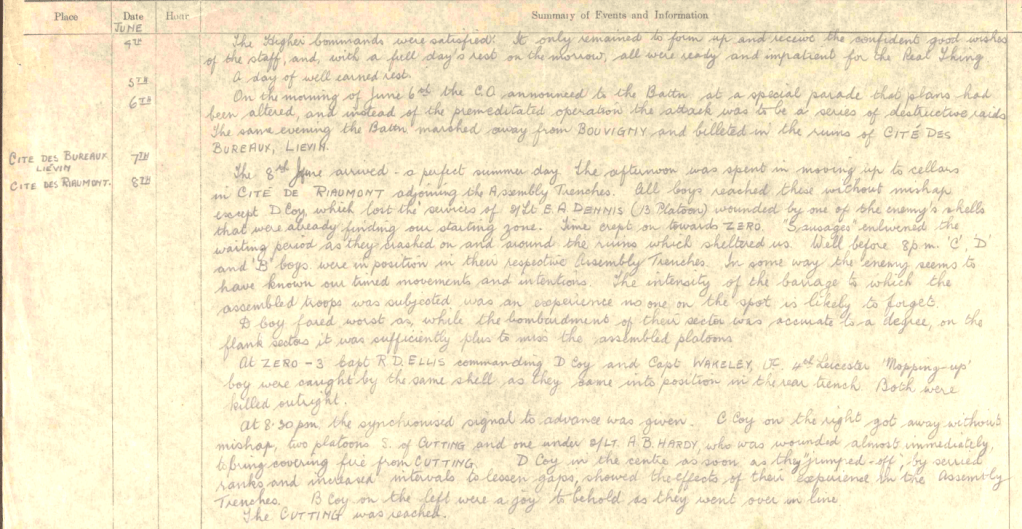 Place Date Hour Summary of Events and Information
JUNE
4TH The Higher Commands were satisfied. It only remained to form up and receive the confident good wishes
of the staff, and, with a full day's rest on the morrow, all were ready and impatient for the Real Thing
5TH A day of well earned rest.
6TH On the morning of June 6th the C.O. announced to the Battn at a special parade that plans had
been altered, and instead of the premeditated operation the attack was to be a series of destructive raids
The same evening the Battn marched away from BOUVIGNY and billeted in the ruins of CITÉ DES
BUREAUX, LIEVIN.
CITE DES BUREAUX 7TH
LIEVIN
CITE DES RIAUMONT. 8TH The 8th June arrived - a perfect summer day. The afternoon was spent in moving up to cellars
in CITÉ DE RIAUMONT adjoining the Assembly Trenches. All Coys reached these without mishap
except D Coy which lost the services of 2/Lt E.A DENNIS (13 Platoon) wounded by one of the enemy's shells
that were already finding our starting zone. Time crept on towards ZERO. "Sausages" enlivened the
waiting period as they crashed on and around the ruins which sheltered us. Well before 8 p.m. 'C', 'D'
and 'B' Coys were in position in their respective Assembly Trenches. In some way the enemy seems to
have known our timed movements and intentions. The intensity of the barrage to which the
assembled troops was subjected was an experience no one on the spot is likely to forget
D Coy fared worst as, while the bombardment of their sector was accurate to a degree, on the
flank sectors it was sufficiently plus to miss the assembled platoons
At ZERO - 3 Capt R.D. ELLIS commanding D Coy and Capt WAKELEY, of 4th Leicester 'Mopping-up'
Coy were caught by the same shell as they came into position in the rear trench Both were
killed outright.
At 8.30 pm. the synchronised signal to advance was given. C Coy on the right got away without
mishap, two platoons S. of CUTTING and one under 2/LT. A.B. HARDY, who was wounded almost immediately,
to bring covering fire from CUTTING. D Coy in the centre as soon as they "jumped-off", by serried
ranks and increased intervals to lessen gaps, showed the effects of their experience in the Assembly
Trenches. B Coy on the left were a joy to behold as they went over in line
The CUTTING was reached.